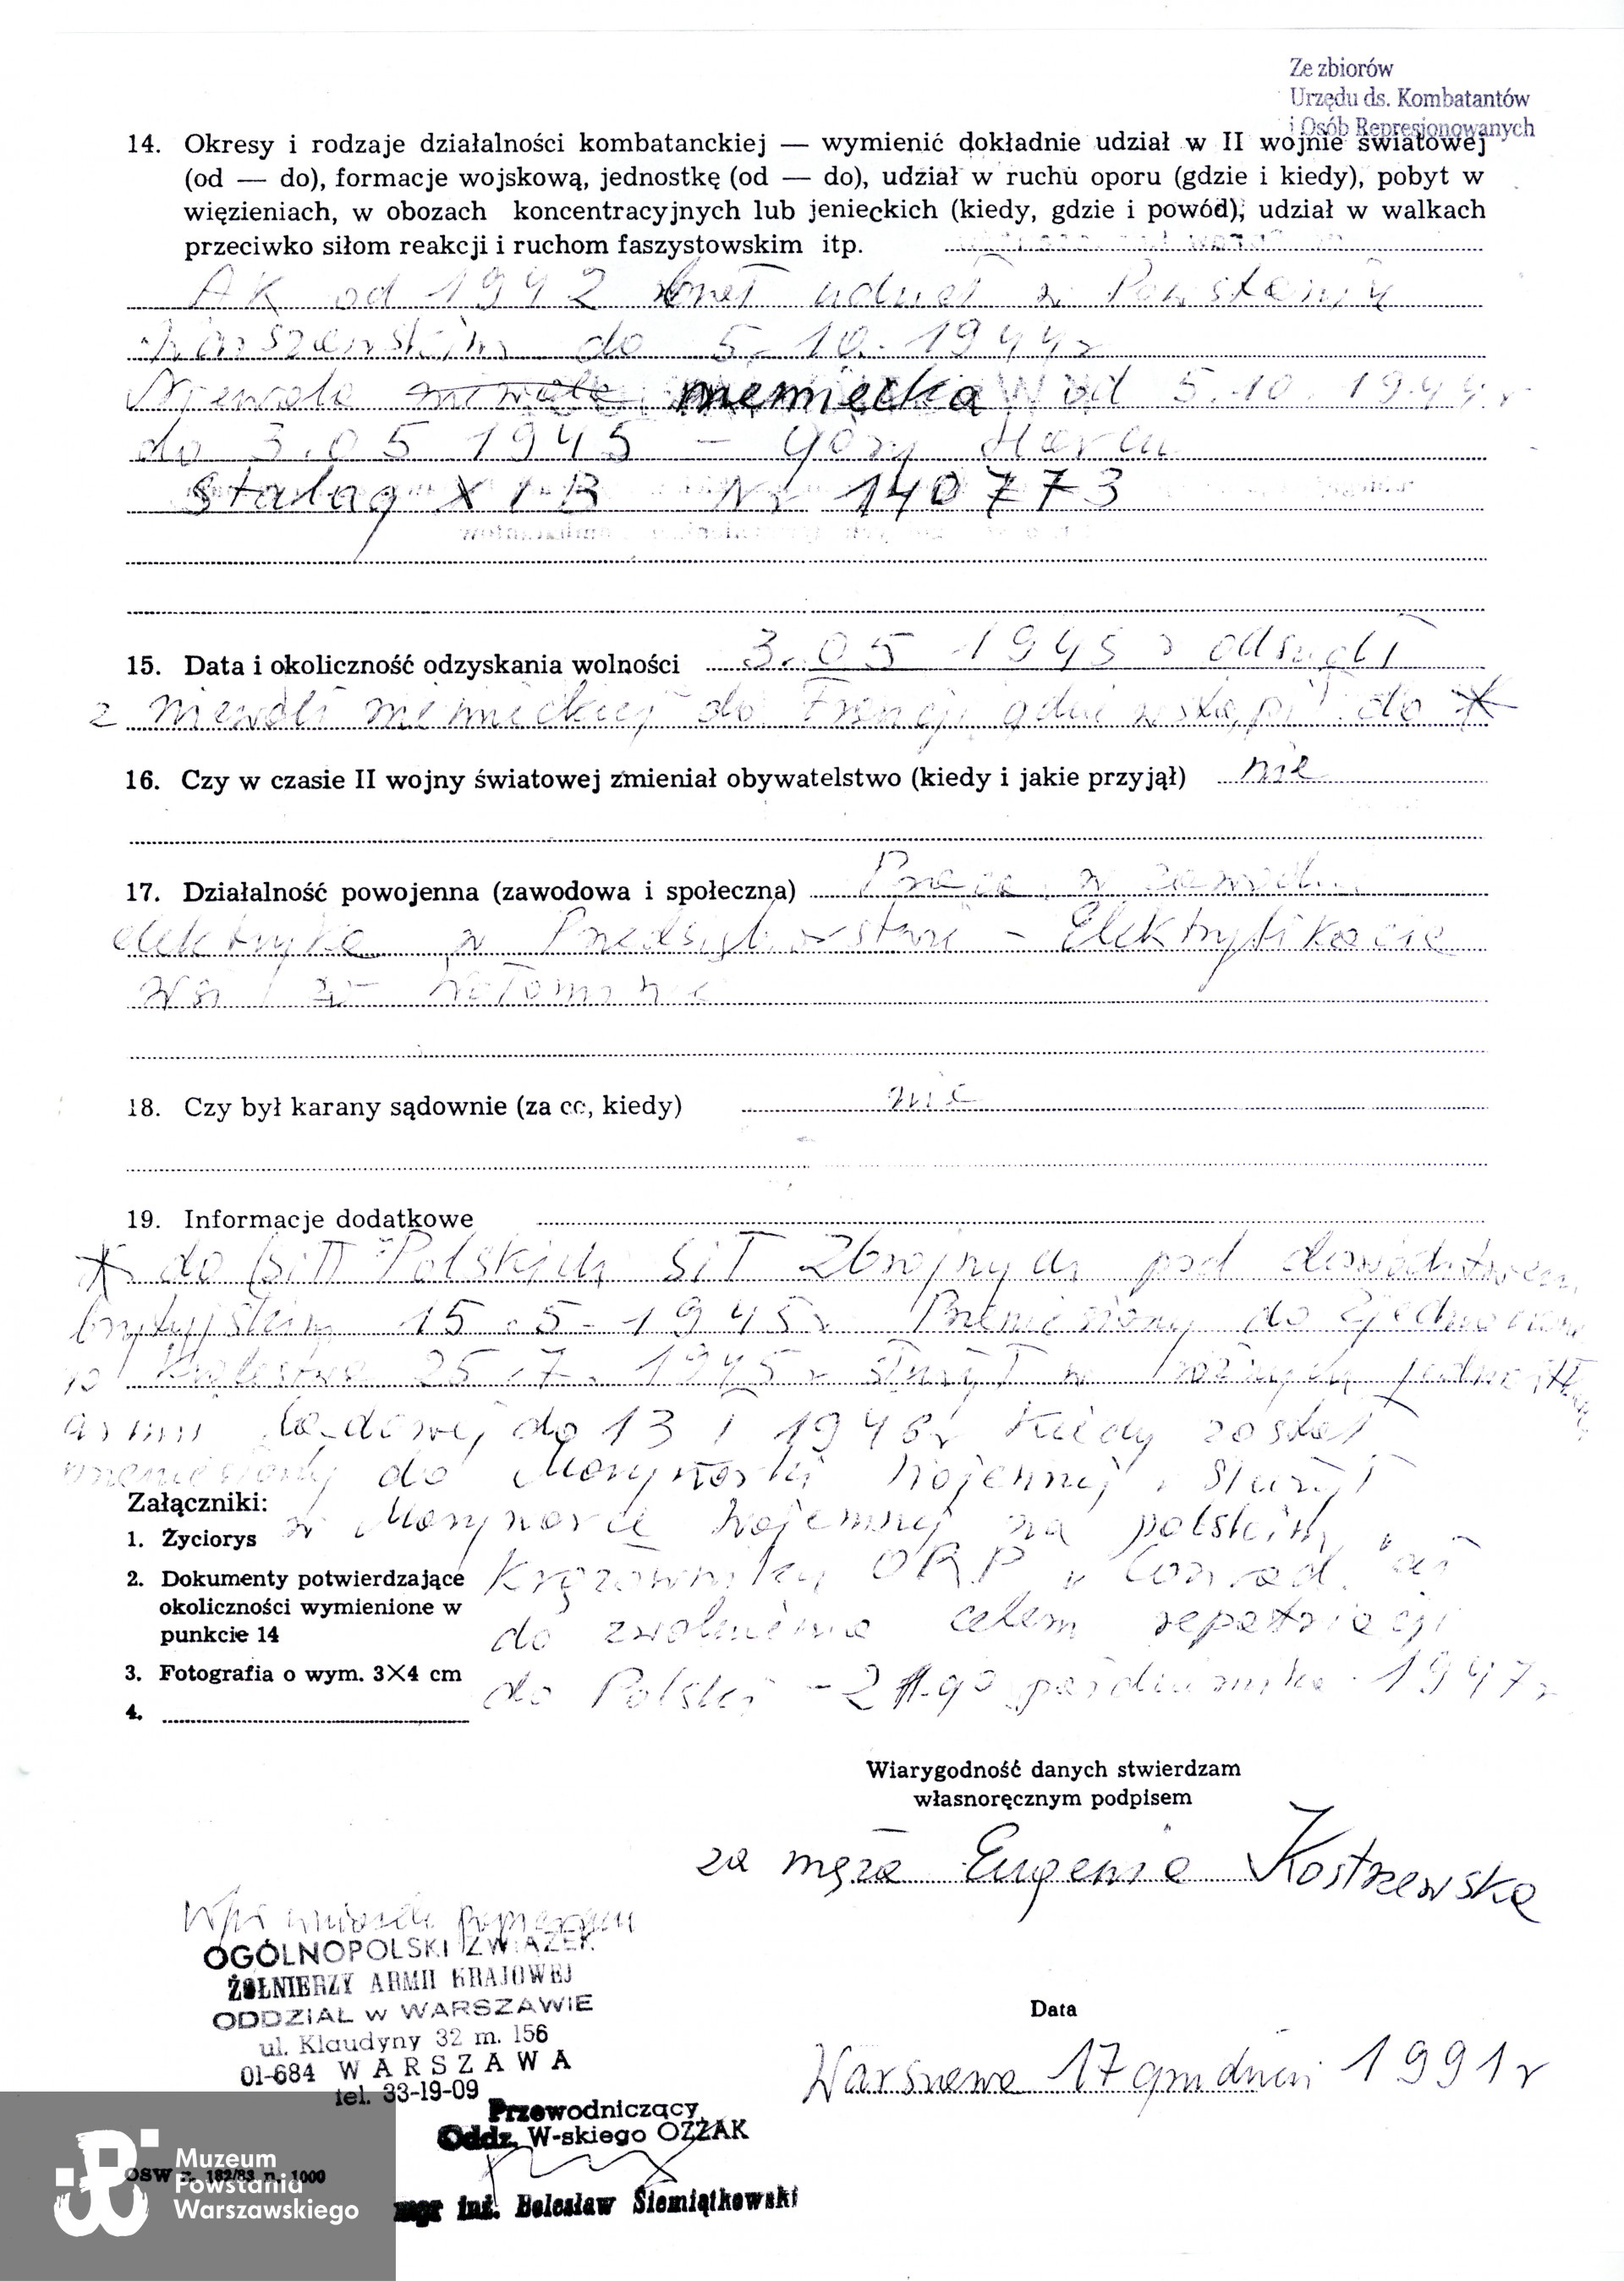 Ze zbiorów
Urzędu ds. Kombatantów
i Osób Represjonowanych
14. Okresy i rodzaje działalności kombatanckiej — wymienić dokładnie udział w II wojnie światowej
(od — do), formacje wojskową, jednostkę (od — do), udział w ruchu oporu (gdzie i kiedy), pobyt w
więzieniach, w obozach koncentracyjnych lub jenieckich (kiedy, gdzie i powód), udział w walkach
przeciwko siłom reakcji i ruchom faszystowskim itp.
AK od 1942 brał udział w Powstaniu
Warszawskim do 5.10.1944 r
Niewola niemiecka od 5.10.1944 r
do 3.05 1945 – Góry Harcu
Stalag XI B Nr 140773
15. Data i okoliczność odzyskania wolności 3.05 1945 r odszedł
z niewoli niemieckiej do Francji gdzie wstąpił do *
16. Czy w czasie II wojny światowej zmieniał obywatelstwo (kiedy i jakie przyjął) nie
17. Działalność powojenna (zawodowa i społeczna) Praca w zawodzie
elektryka w Przedsiębiorstwie - Elektryfikacie
wsi w Wołominie
18. Czy był karany sądownie (za co, kiedy) nie
19. Informacje dodatkowe
* do Polskich Sił Zbrojnych pod dowództwem
brytyjskim 15.5.1945 r Przeniesiony do Zjednoczone
go Królestwa 25.7.1945 r służył w różnych jednostkach
armii lądowej do 13 I 1946 r kiedy został
przeniesiony do Marynarki Wojennej i służył
w Marynarce Wojennej na polskim
krążowniku ORP „Conrad" aż
do zwolnienia celem repatriacji
do Polski - 2 go października 1947 r
Załączniki:
1. Życiorys
2. Dokumenty potwierdzające
okoliczności wymienione w
punkcie 14
3. Fotografia o wym. 3×4 cm
4.
Wiarygodność danych stwierdzam
własnoręcznym podpisem
za męża Eugenia Kostrzewska
wniosek popieram
OGÓLNOPOLSKI ZWIĄZEK
ŻOŁNIERZY ARMII KRAJOWEJ
ODDZIAŁ w WARSZAWIE
ul. Klaudyny 32 m. 156
01-684 WARSZAWA
tel. 33-19-09
Data
Warszawa 17 grudzień 1991 r
Przewodniczący
Oddz. W-skiego OZŻAK
mgr inż. Bolesław Siemiątkowski
OSW z. 182/83 n. 1000
Muzeum
Powstania
Warszawskiego